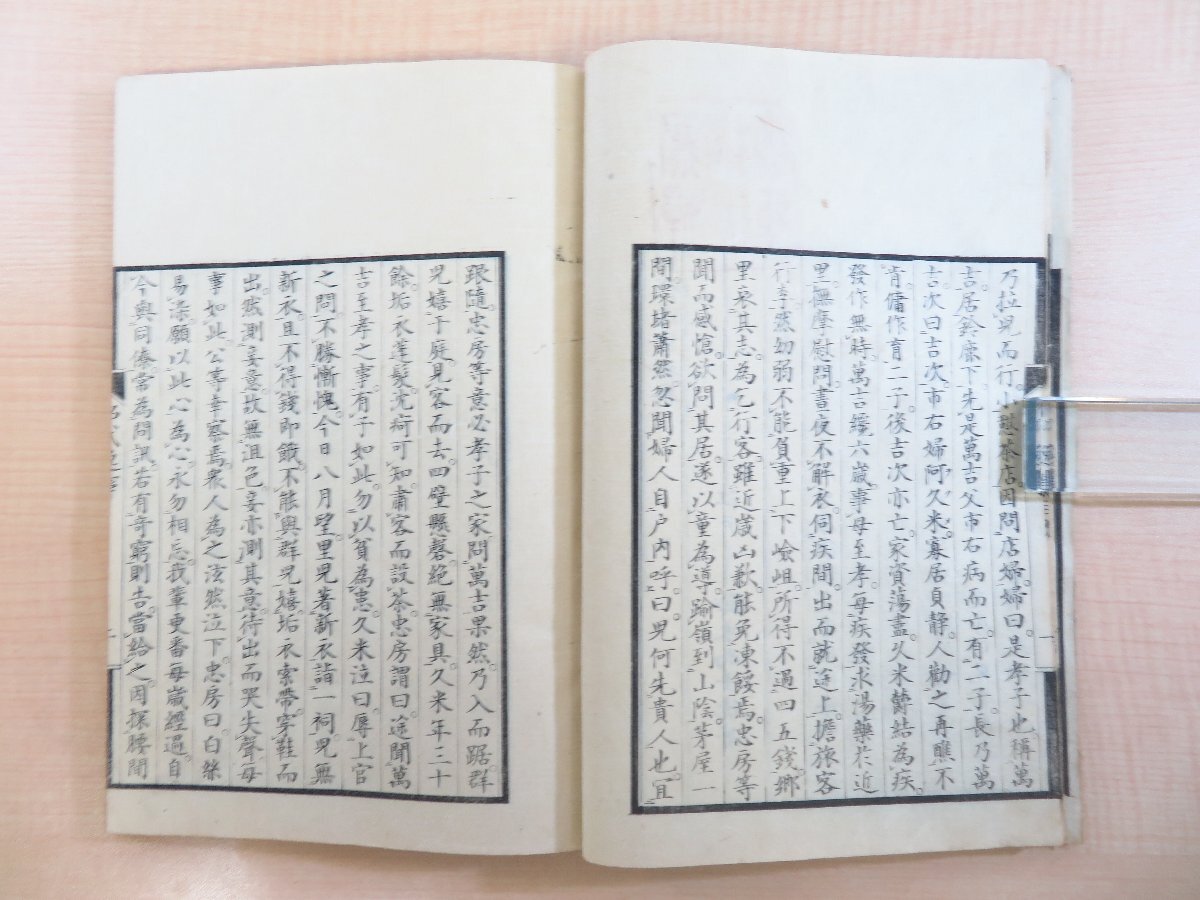 乃拉兒而行。小憩茶店。因問店婦。婦曰。是孝子也。稱萬
吉。居鈴鹿下。先是萬吉父市右病而亡。有二子。長乃萬
吉。次曰吉次。市右婦阿久米。寡居貞静。人勸之再醮。不
肯。傭作育二子。後吉次亦亡。家資蕩盡。久米欝結為疾。
發作無時。萬吉纔六歳。事母至孝。每疾發。求湯藥於近
里。撫摩慰問。晝夜不解衣。伺疾間。出而就途上。擔旅客
行李。然幼弱不能負重上下嶮岨。所得不過四五錢。鄉
里哀其志。為乞行客。雖近歳山歉。能免凍餒焉。忠房等
聞而感愴。欲問其居。遂以童為導。踰嶺到山陰。茅屋一
間。環堵蕭然。忽聞婦人自户内呼曰。兒何先貴人也。宜
跟隨。忠房等意必孝子之家。問萬吉。果然。乃入而踞。群
兒嬉于庭。見客而去。四壁懸磬。絶無家具。久米年三十
餘。垢衣蓬髮。尤痾可知。肅客而設茶。忠房謂曰。途聞萬
吉至孝之事。有子如此。勿以貧為患。久米泣曰。辱上官
之問。不勝慚愧。今日八月望。里兒著新衣詣一祠。兒無
新衣。且不得錢即餓。不能與群兒嬉。垢衣索帶。穿鞋而
出。然測妾意。故無沮色。妾亦測其意。待出而哭失聲。母
事如此。公等幸察焉。衆人為之泫然泣下。忠房曰。白絲
易染。願以此心為心。永勿相忘。我輩更番每歳經過。自
今與同僚。當為問訊。若有奇窮則告。當給之。因探腰間